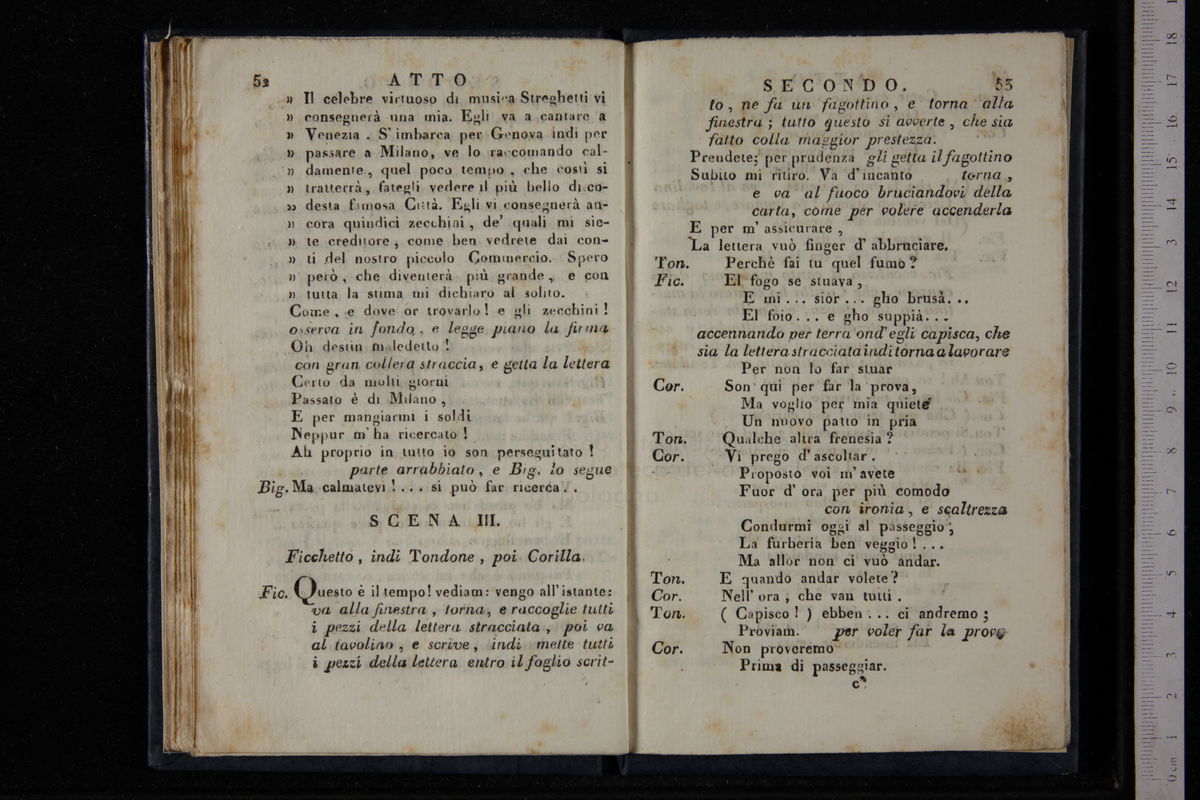 52 ATTO
» Il celebre virtuoso di musica Streghetti vi
» consegnerà una mia. Egli va a cantare a
» Venezia . S' imbarca per Genova indi per
» passare a Milano, ve lo raccomando cal-
» damente, quel poco tempo , che costì si
» tratterrà, fategli vedere il più bello di co-
» desta famosa Città. Egli vi consegnerà an-
» cora quindici zecchini , de' quali mi sie-
» te creditore , come ben vedrete dai con-
» ti del nostro piccolo Commercio. Spero
» però , che diventerà più grande, e con
» tutta la stima mi dichiaro al solito.
Come , e dove or trovarlo ! e gli zecchini !
osserva in fondo , e legge piano la firma
Oh destin maledetto !
con gran collera straccia, e getta la lettera
Certo da molti giorni
Passato è di Milano ,
E per mangiarmi i soldi
Neppur m' ha ricercato !
Ah proprio in tutto io son perseguitato !
parte arrabbiato , e Big. lo segue
Big. Ma calmatevi ! . . . si può far ricerca . .
SCENA III.
Ficchetto , indi Tondone , poi Corilla.
Fic. Questo è il tempo! vediam: vengo all' istante:
va alla finestra , torna, e raccoglie tutti
i pezzi della lettera stracciata , poi va
al tavolino , e scrive, indi mette tutti
i pezzi della lettera entro il foglio scrit-
SECONDO. 53
to , ne fa un fagottino , e torna alla
finestra ; tutto questo si avverte , che sia
fatto colla maggior prestezza.
Prendete; per prudenza gli getta il fagottino
Subito mi ritiro. Va d' incanto torna ,
e va al fuoco bruciandovi della
carta, come per volere accenderla
E per m' assicurare ,
La lettera vuò finger d' abbruciare.
Ton. Perchè fai tu quel fumo ?
Fic. El fogo se stuava ,
E mi . . . sior . . . gho brusà. . .
El foio . . . e gho suppià. . .
accennando per terra ond' egli capisca, che
sia la lettera stracciata indi torna a lavorare
Per non lo far stuar
Cor. Son qui per far la prova,
Ma voglio per mia quiete
Un nuovo patto in pria
Ton. Qualche altra frenesia ?
Cor. Vi prego d' ascoltar .
Proposto voi m' avete
Fuor d' ora per più comodo
con ironia , e scaltrezza
Condurmi oggi al passeggio ;
La furberia ben veggio ! . . .
Ma allor non ci vuò andar.
Ton. E quando andar volete ?
Cor. Nell' ora , che van tutti .
Ton. ( Capisco ! ) ebben . . . ci andremo ;
Proviam. per voler far la prova
Cor. Non proveremo
Prima di passeggiar.
c*
0 cm 1 2 3 4 5 6 7 8 9 10 11 12 13 14 15 16 17 18